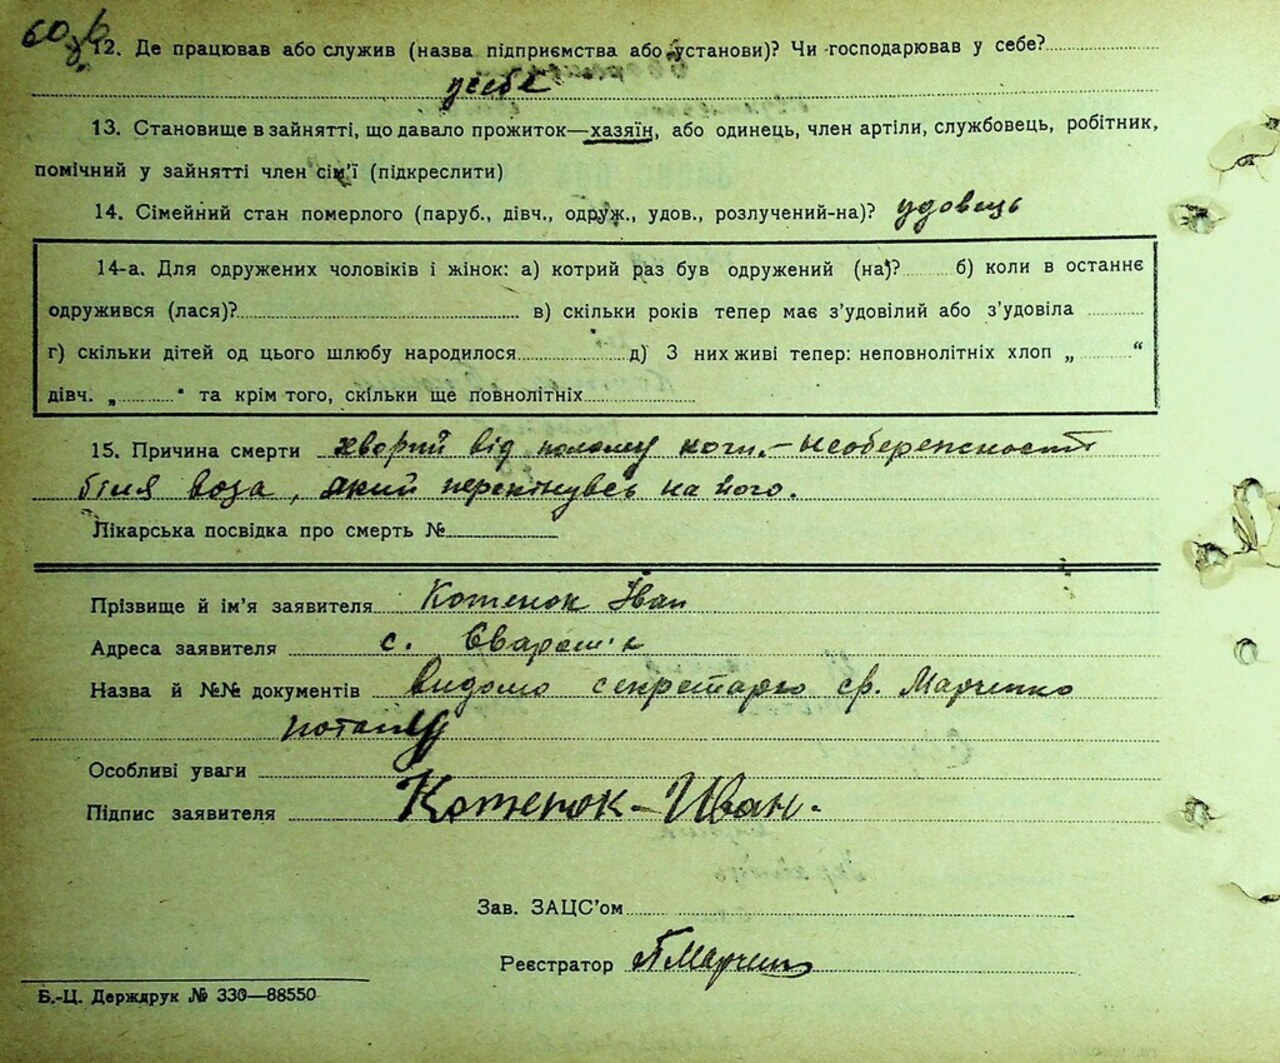 60 зв
12. Де працював або служив (назва підприємства або установи)? Чи господарював у себе?
у себе
13. Становище в зайнятті, що давало прожиток—хазяїн, або одинець, член артіли, службовець, робітник,
помічний у зайнятті член сім'ї (підкреслити)
14. Сімейний стан померлого (паруб., дівч., одруж., удов., розлучений-на)? удовець
14-а. Для одружених чоловіків і жінок: а) котрий раз був одружений (на)? б) коли в останнє
одружився (лася)? в) скільки років тепер має з'удовілий або з'удовіла
г) скільки дітей од цього шлюбу народилося д) З них живі тепер: неповнолітніх хлоп „ “
дівч. „ “ та крім того, скільки ще повнолітніх
15. Причина смерти хворий від полому ноги.- необережности
біля воза, який перекінувсь на його.
Лікарська посвідка про смерть №
Прізвище й ім'я заявителя Котенок Іван
Адреса заявителя с. Єварошк
Назва й №№ документів видомо секретарю ср. Марченко
Особливі уваги
Підпис заявителя Котенок-Иван.
Зав. ЗАЦС'ом
Реєстратор ПМарченко
Б.-Ц. Держдрук № 330—88550